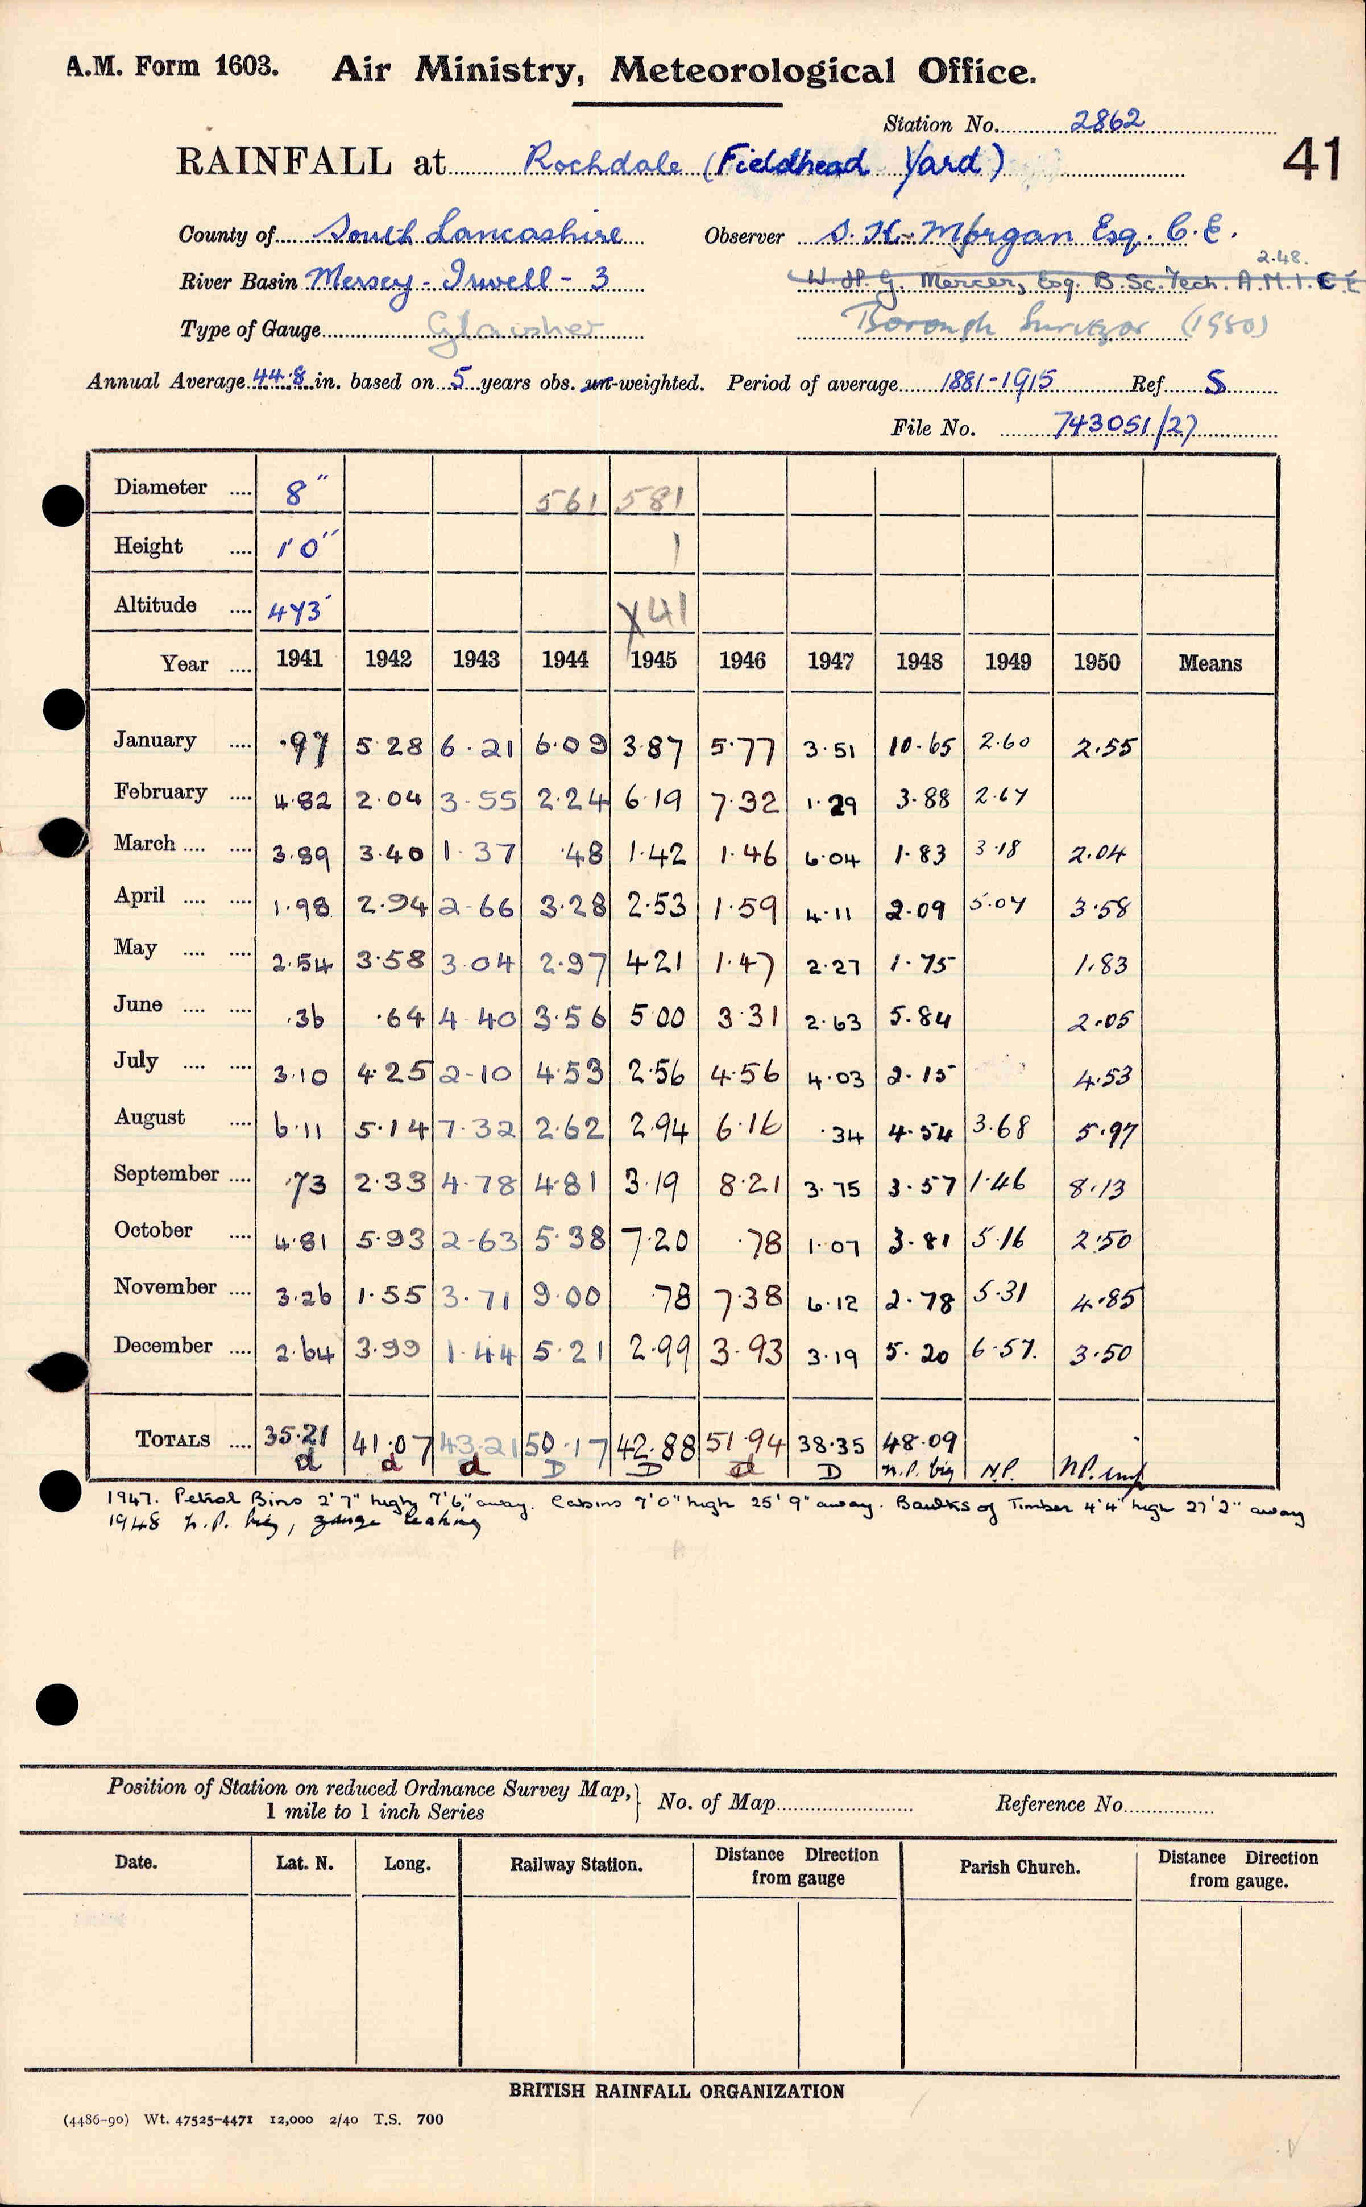 A.M. Form 1603. Air Ministry, Meteorological Office.
Station No. 2862
41
RAINFALL at Rochdale (Fieldhead Yard)
County of South Lancashire Observer S. H. Morgan Esq. C.E.
2.48.
River Basin Mersey - Irwell - 3 W. H. G. Mercer, Esq. B.Sc. Tech. A.M.I.C.E
Type of Gauge Glaisher Borough Surveyor (1950)
Annual Average 44.8 in. based on 5 years obs. un-weighted. Period of average 1881-1915 Ref S
File No. 743051/27
Diameter .... 8" 561 581
Height .... 1'0" 1
Altitude .... 473' X41
Year .... 1941 1942 1943 1944 1945 1946 1947 1948 1949 1950 Means
January .... .97 5.28 6.21 6.09 3.87 5.77 3.51 10.65 2.60 2.55
February .... 4.82 2.04 3.55 2.24 6.19 7.32 1.29 3.88 2.67
March .... .... 3.89 3.40 1.37 .48 1.42 1.46 6.04 1.83 3.18 2.04
April .... .... 1.98 2.94 2.66 3.28 2.53 1.59 4.11 2.09 5.07 3.58
May .... .... 2.54 3.58 3.04 2.97 4.21 1.47 2.27 1.75 1.83
June .... .... .36 .64 4.40 3.56 5.00 3.31 2.63 5.84 2.05
July .... .... 3.10 4.25 2.10 4.53 2.56 4.56 4.03 2.15 4.53
August .... 6.11 5.14 7.32 2.62 2.94 6.16 .34 4.54 3.68 5.97
September .... .73 2.33 4.78 4.81 3.19 8.21 3.75 3.57 1.46 8.13
October .... 4.81 5.93 2.63 5.38 7.20 .78 1.07 3.81 5.16 2.50
November .... 3.26 1.55 3.71 9.00 .78 7.38 6.12 2.78 5.31 4.85
December .... 2.64 3.99 1.44 5.21 2.99 3.93 3.19 5.20 6.57. 3.50
TOTALS .... 35.21 41.07 43.21 50.17 42.88 51.94 38.35 48.09
d d d D D d D n.p. big N.P. N.P. imp
1947. Petrol Bins 2'7" high 7'6" away. Cabins 7'0" high 25'9" away. Baulks of Timber 4'4" high 27'2" away
1948 n.p. big, gauge leaking
Position of Station on reduced Ordnance Survey Map, 1 mile to 1 inch Series No. of Map Reference No.
Date. Lat. N. Long. Railway Station. Distance Direction from gauge Parish Church. Distance Direction from gauge.
BRITISH RAINFALL ORGANIZATION
(4486-90) Wt. 47525-4471 12,000 2/40 T.S. 700